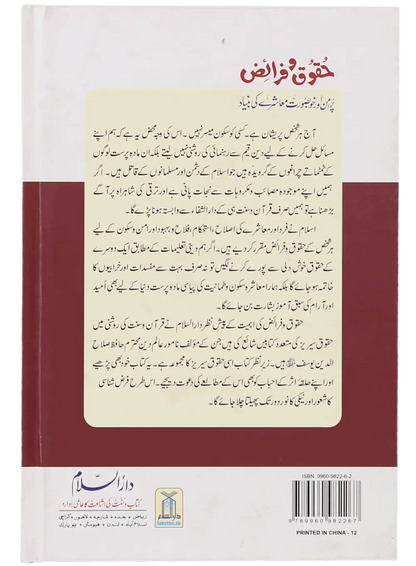 حقوق و فرائض
پُرامن اور خوبصورت معاشرے کی بنیاد
آج ہر شخص پریشان ہے۔ کسی کو سکون میسر نہیں۔ اس کی وجہ محض یہ ہے کہ ہم اپنے
مسائل حل کرنے کے لیے دینِ قیم سے رہنمائی کی روشنی نہیں لیتے بلکہ ان مادہ پرست لوگوں
کے ٹمٹماتے چراغوں کے گرویدہ ہیں جو اسلام کے دشمن اور مسلمانوں کے قاتل ہیں۔ اگر
ہمیں اپنے موجودہ مصائب و مکروہات سے نجات پانی ہے اور ترقی کی شاہراہ پر آگے
بڑھنا ہے تو ہمیں صرف قرآن و سنت ہی کے دارالشفاء سے وابستہ ہونا پڑے گا۔
اسلام نے فرد اور معاشرے کی اصلاح، استحکام، فلاح و بہبود اور امن و سکون کے لیے
ہر شخص کے حقوق و فرائض مقرر کر دیے ہیں۔ اگر ہم دینی تعلیمات کے مطابق ایک دوسرے
کے حقوق خوش دلی سے پورے کرنے لگیں تو نہ صرف بہت سے مفسدات اور خرابیوں کا
خاتمہ ہو جائے گا بلکہ ہمارا معاشرہ سکون و طمانیت کی پیاسی مادہ پرست دنیا کے لیے بھی اُمید
اور آرام کی سبق آموز بشارت بن جائے گا۔
حقوق و فرائض کی اہمیت کے پیش نظر دارالسلام نے قرآن و سنت کی روشنی میں
حقوق سیریز کی متعدد کتابیں شائع کی ہیں جن کے مؤلف نامور عالم دین محترم حافظ صلاح
الدین یوسف ہیں۔ زیر نظر کتاب اسی حقوق سیریز کا مجموعہ ہے۔ یہ کتاب خود بھی پڑھیے
اور اپنے حلقۂ اثر کے احباب کو بھی اس کے مطالعے کی دعوت دیجیے۔ اس طرح فرض شناسی
کا شعور اور نیکی کا نور دور تک پھیلتا چلا جائے گا۔
دارالسلام
کتاب و سنت کی اشاعت کا عالمی ادارہ
ریاض • جدہ • شارجہ • لاہور • کراچی
اسلام آباد • لندن • ہیوسٹن • نیویارک
ISBN: 9960-9822-6-2
9 789960 982267
PRINTED IN CHINA - 12